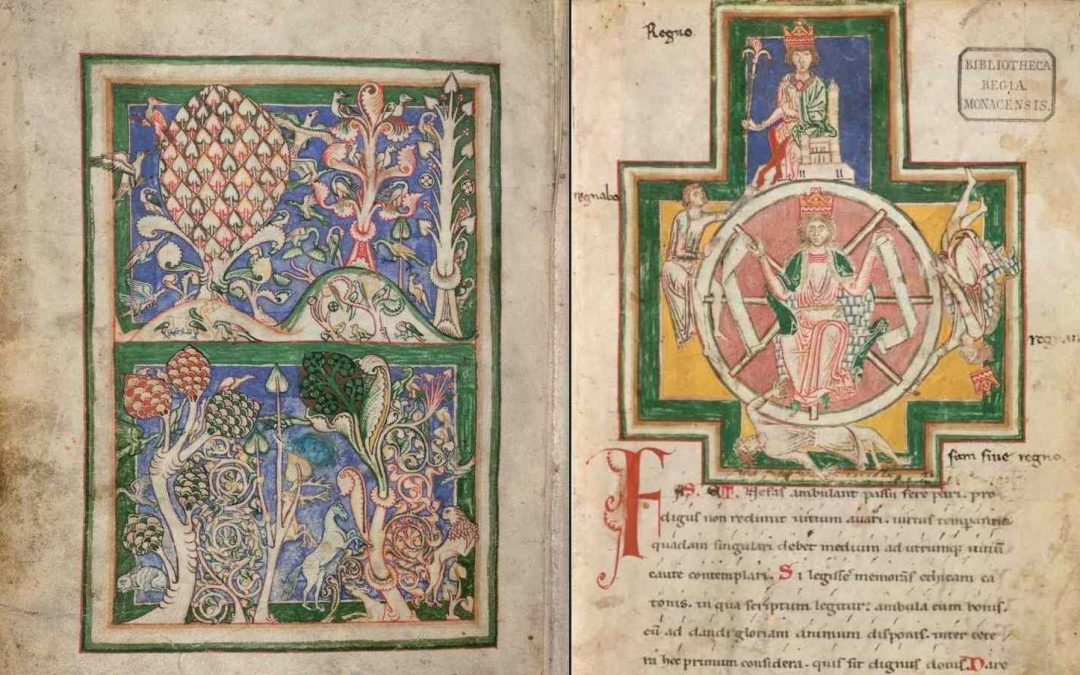 Regno.
BIBLIOTHECA
REGIA
MONACENSIS.
regnabo
sum sine regno
FAS ET Nefas ambulant passu fere pari. pro
digus non redimit uitium auari. uirtus temperantia
quadam singulari debet medium ad utrumq; uitiū
caute contemplari. Si legisse memoras ethicam ca
tonis. in qua scriptum legitur. ambula cum bonis.
cū ad dandi gloriam animum disponis. inter cete
ra hoc primum considera. quis sit dignus donis. Dare